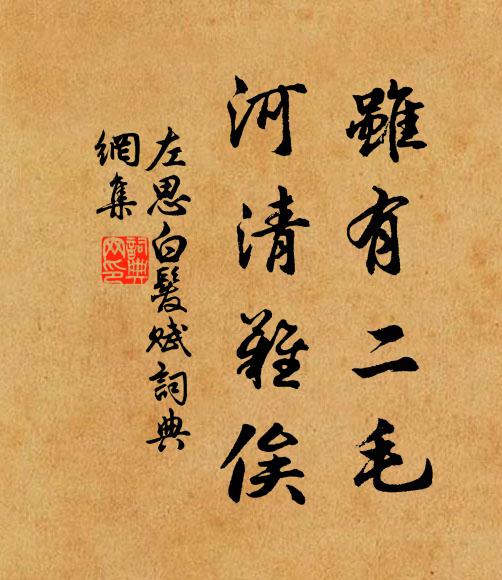 雖有二毛
河清難俟
左思白髮賦詞典
網集
詞典
網印